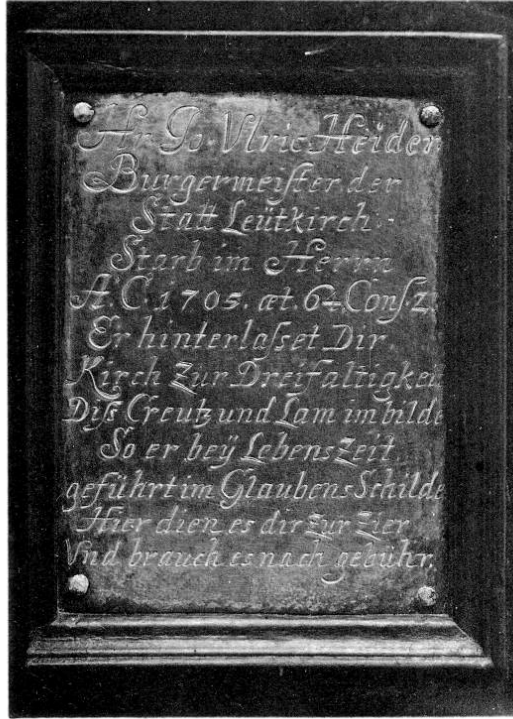 Hr. Jo. Vlric Heiden
Burgermeiſter der
Statt Leütkirch.
Starb im Herrn
A.C. 1705. æt. 64. Conſ. Z.
Er hinterlaſset Dir.
Kirch Zur Dreifaltigkeit
Diſs Creutz und Lam im bilde
So er beÿ Lebens Zeit
geführt im Glaubens Schilde
Hier dien es dir zur zier
Vnd brauch es nach gebühr.